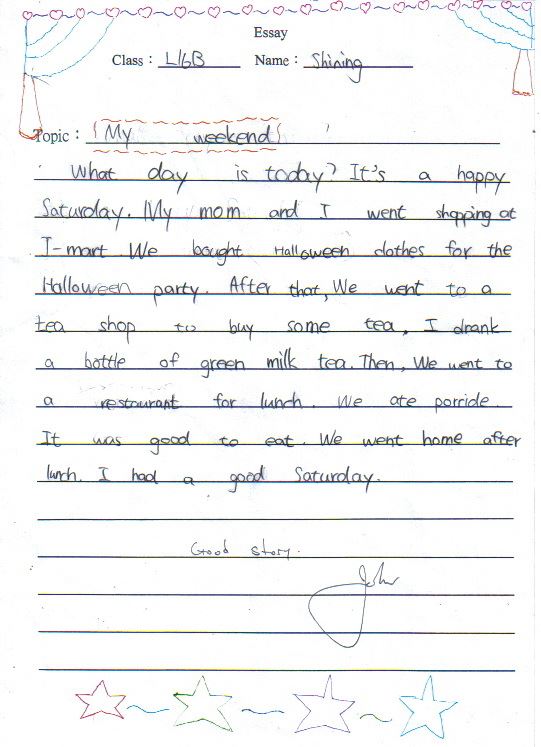 Essay
Class : L16B Name : Shining
Topic : My weekend
What day is today? It's a happy
Saturday. My mom and I went shopping at
T-mart. We bought Halloween clothes for the
Halloween party. After that, We went to a
tea shop to buy some tea. I drank
a bottle of green milk tea. Then, We went to
a restaurant for lunch. We ate porride.
It was good to eat. We went home after
lunch. I had a good Saturday.
Good story.
John